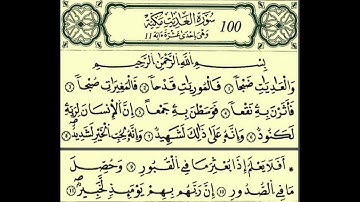 سُورَةُ العَٰدِيَٰتِ مَكِّيَّة
وَهِيَ اِحْدٰى عَشْرَةَ اٰيَة ١١
100
بِسْمِ اللَّهِ الرَّحْمَٰنِ الرَّحِيمِ
وَالْعَادِيَاتِ ضَبْحًا ١ فَالْمُورِيَاتِ قَدْحًا ٢ فَالْمُغِيرَاتِ صُبْحًا ٣
فَأَثَرْنَ بِهِ نَقْعًا ٤ فَوَسَطْنَ بِهِ جَمْعًا ٥ إِنَّ الْإِنْسَانَ لِرَبِّهِ
لَكَنُودٌ ٦ وَإِنَّهُ عَلَى ذَٰلِكَ لَشَهِيدٌ ٧ وَإِنَّهُ لِحُبِّ الْخَيْرِ لَشَدِيدٌ ٨
أَفَلَا يَعْلَمُ إِذَا بُعْثِرَ مَا فِي الْقُبُورِ ٩ وَحُصِّلَ
مَا فِي الصُّدُورِ ١٠ إِنَّ رَبَّهُمْ بِهِمْ يَوْمَئِذٍ لَخَبِيرٌ ١١